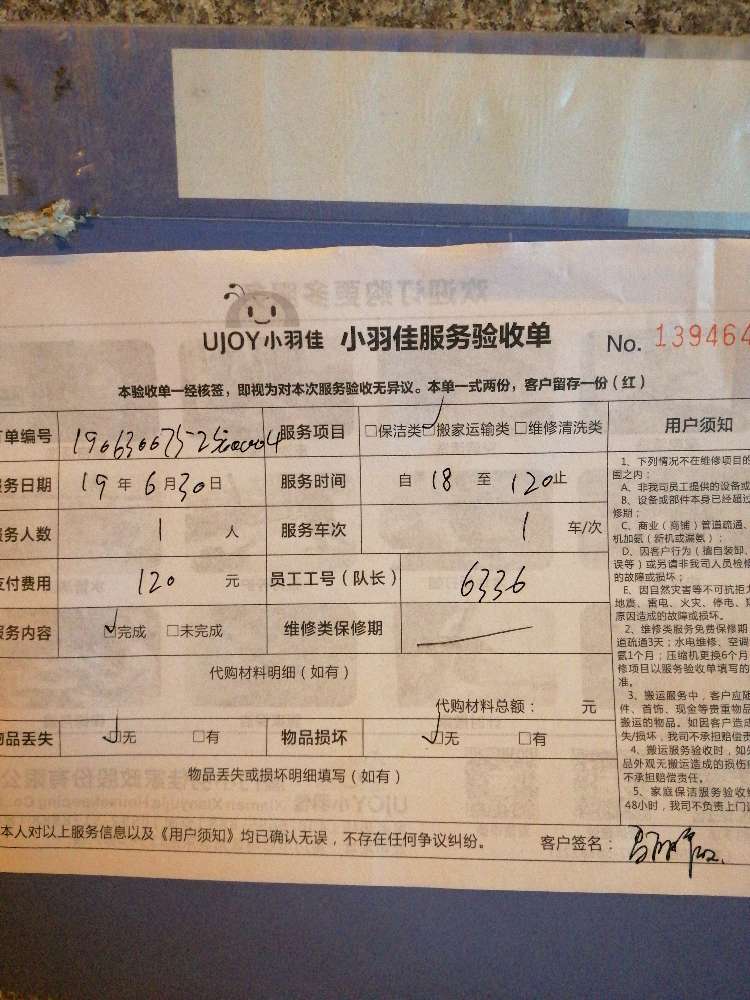 UJOY小羽佳 小羽佳服务验收单 No. 139464
本验收单一经核签，即视为对本次服务验收无异议。本单一式两份，客户留存一份（红）
单编号 服务项目 □保洁类 ☑搬家运输类 □维修清洗类 用户须知
务日期 19年6月30日 服务时间 自 18 至 止
务人数 1 人 服务车次 1 车/次
付费用 120 元 员工工号（队长） 6336
务内容 ☑完成 □未完成 维修类保修期
代购材料明细（如有）
代购材料总额： 元
物品丢失 ☑无 □有 物品损坏 ☑无 □有
物品丢失或损坏明细填写（如有）
本人对以上服务信息以及《用户须知》均已确认无误，不存在任何争议纠纷。 客户签名：
1、下列情况不在维修项目的
围之内：
A、非我司员工提供的设备或
B、设备或部件本身已经超过
修期；
C、商业（商铺）管道疏通、
机加氨（新机或漏氨）；
D、因客户行为（擅自装卸、
误等）或另请非我司人员检修
的故障或损坏；
E、因自然灾害等不可抗拒力
地震、雷电、火灾、停电、
原因造成的故障或损坏。
2、维修类服务免费保修期
道疏通3天；水电维修、空调
氨1个月；压缩机更换6个月
修项目以服务验收单填写的
准。
3、搬运服务中，客户应随
件、首饰、现金等贵重物品
搬运的物品。如因客户造成
失/损坏，我司不承担赔偿责
4、搬运服务验收时，如
品外观无搬运造成的损伤
不承担赔偿责任。
5、家庭保洁服务验收
48小时，我司不负责上门